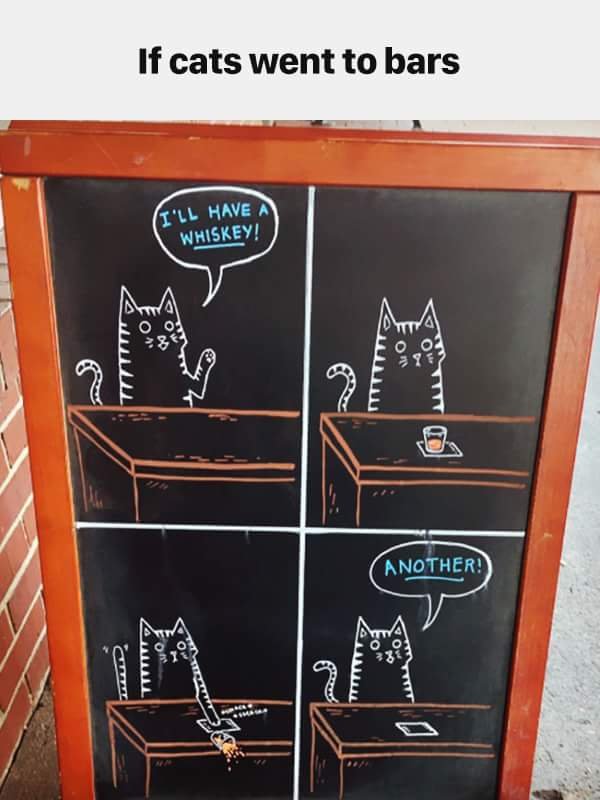 If cats went to bars
I'LL HAVE A
WHISKEY!
ANOTHER!